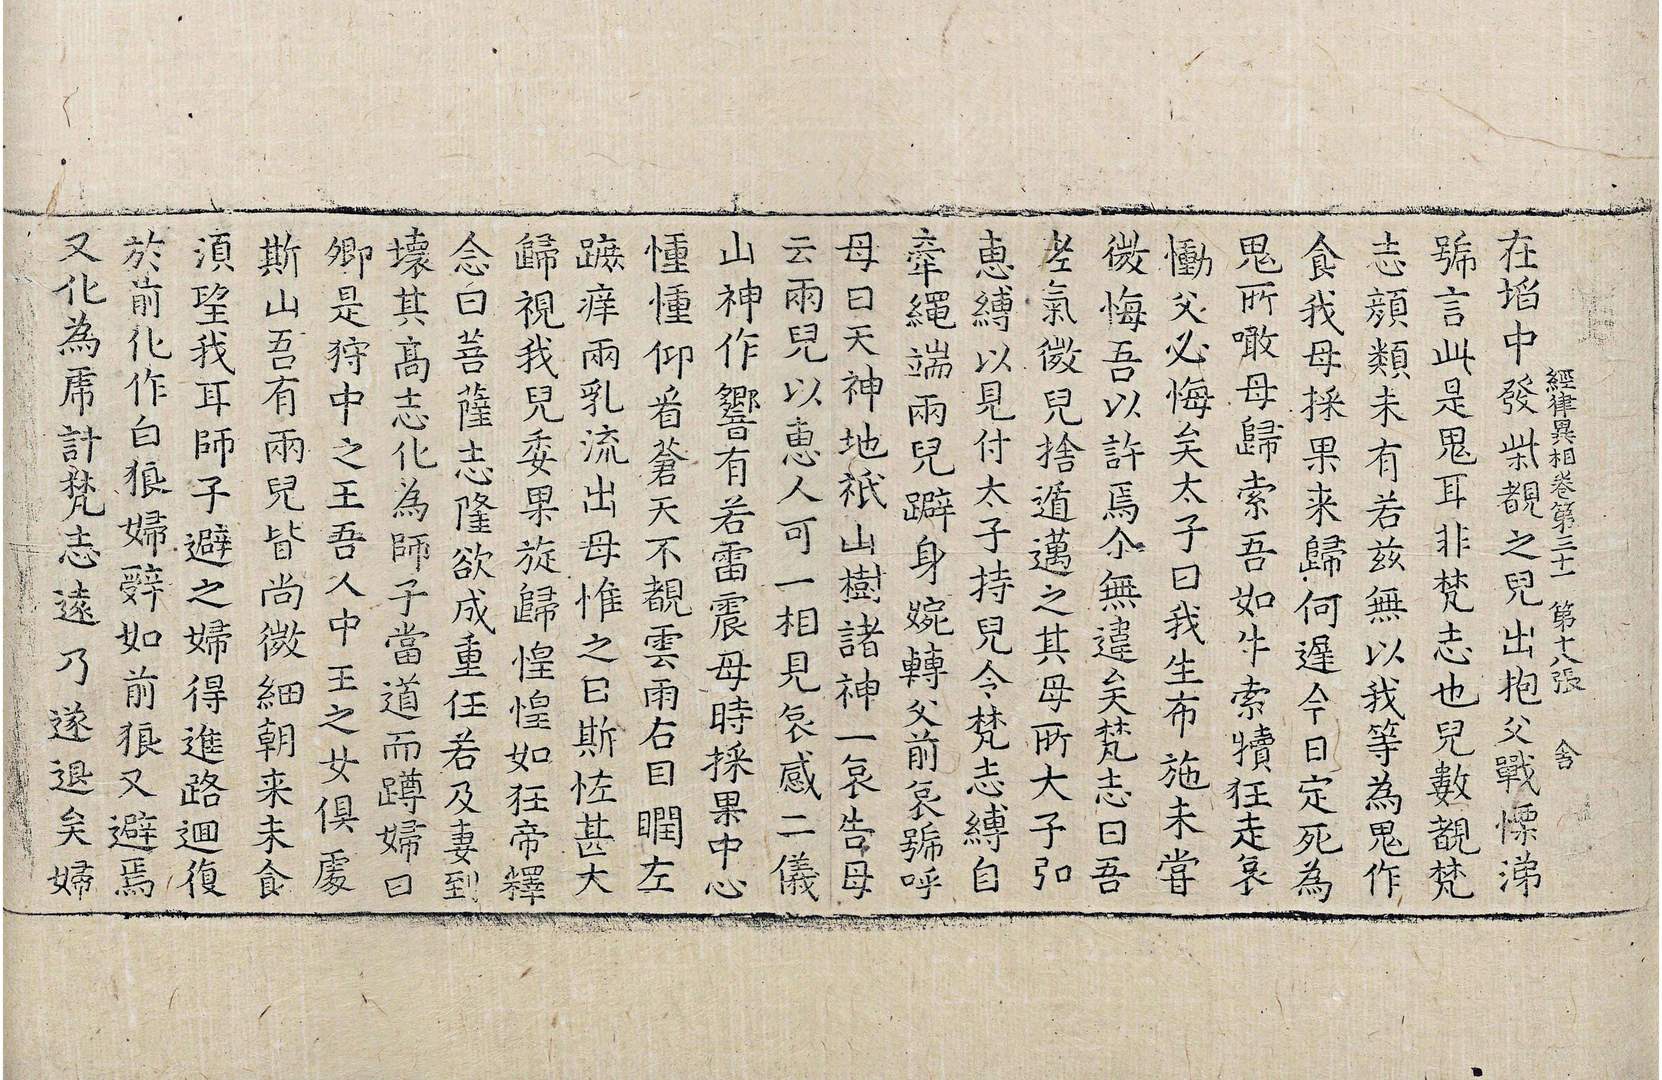 經律異相卷第三十一 第十八張 舍
在埳中發柴覩之兒出抱父戰慄涕
號言此是鬼耳非梵志也兒數覩梵
志顏類未有若兹無以我等為鬼作
食我母採果来歸何遲今日定死為
鬼所噉母歸索吾如牛索犢狂走哀
慟父必悔矣太子曰我生布施未甞
微悔吾以許焉尒無違矣梵志曰吾
老氣微兒捨遁邁之其母所大子引
恵縛以見付太子持兒令梵志縛自
牽繩端兩兒躃身婉轉父前哀號呼
母曰天神地祇山樹諸神一哀告母
云兩兒以恵人可一相見哀感二儀
山神作響有若雷震母時採果中心
憧憧仰看蒼天不覩雲雨右目瞤左
蹠痒兩乳流出母惟之曰斯恠甚大
歸視我兒委果旋歸惶惶如狂帝釋
念曰菩薩志隆欲成重任若及妻到
壞其高志化為師子當道而蹲婦曰
卿是狩中之王吾人中王之女俱處
斯山吾有兩兒皆尚微細朝来未食
湏望我耳師子避之婦得進路迴復
於前化作白狼婦辤如前狼又避焉
又化為虎計梵志遠乃遂退矣婦